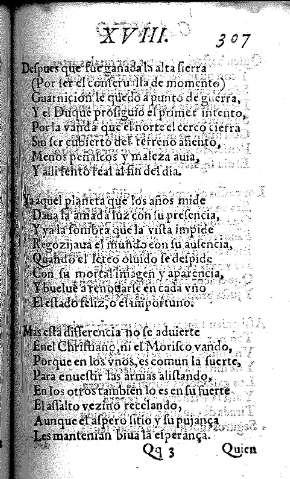 XVIII. 307
Despues que fue ganada la alta sierra
(Por ser el conseruilla de momento)
Guarnicion le quedò a punto de guerra,
Y el Duque prosiguiò el primer intento,
Por la vanda que el norte el cerco cierra
Sin ser cubierto del terreno assiento,
Menos peñascos y maleza auia,
Y alli sentò real al fin del dia.
Ya aquel planeta que los años mide
Daua la amada luz con su presencia,
Y ya la sombra que la vista impide
Regozijaua el mundo con su ausencia,
Quando el seco oluido se despide
Con su mortal imagen y aparencia,
Y buelue a renouarse en cada vno
El estado feliz, o el importuno.
Mas esta differencia no se aduierte
En el Christiano, ni el Morisco vando,
Porque en los vnos, es comun la suerte,
Para enuestir las armas alistando,
En los otros tambien lo es en su suerte
El assalto vezino recelando,
Aunque el aspero sitio y su pujança
Les mantenian biua la esperança.
Qq 3 Quien